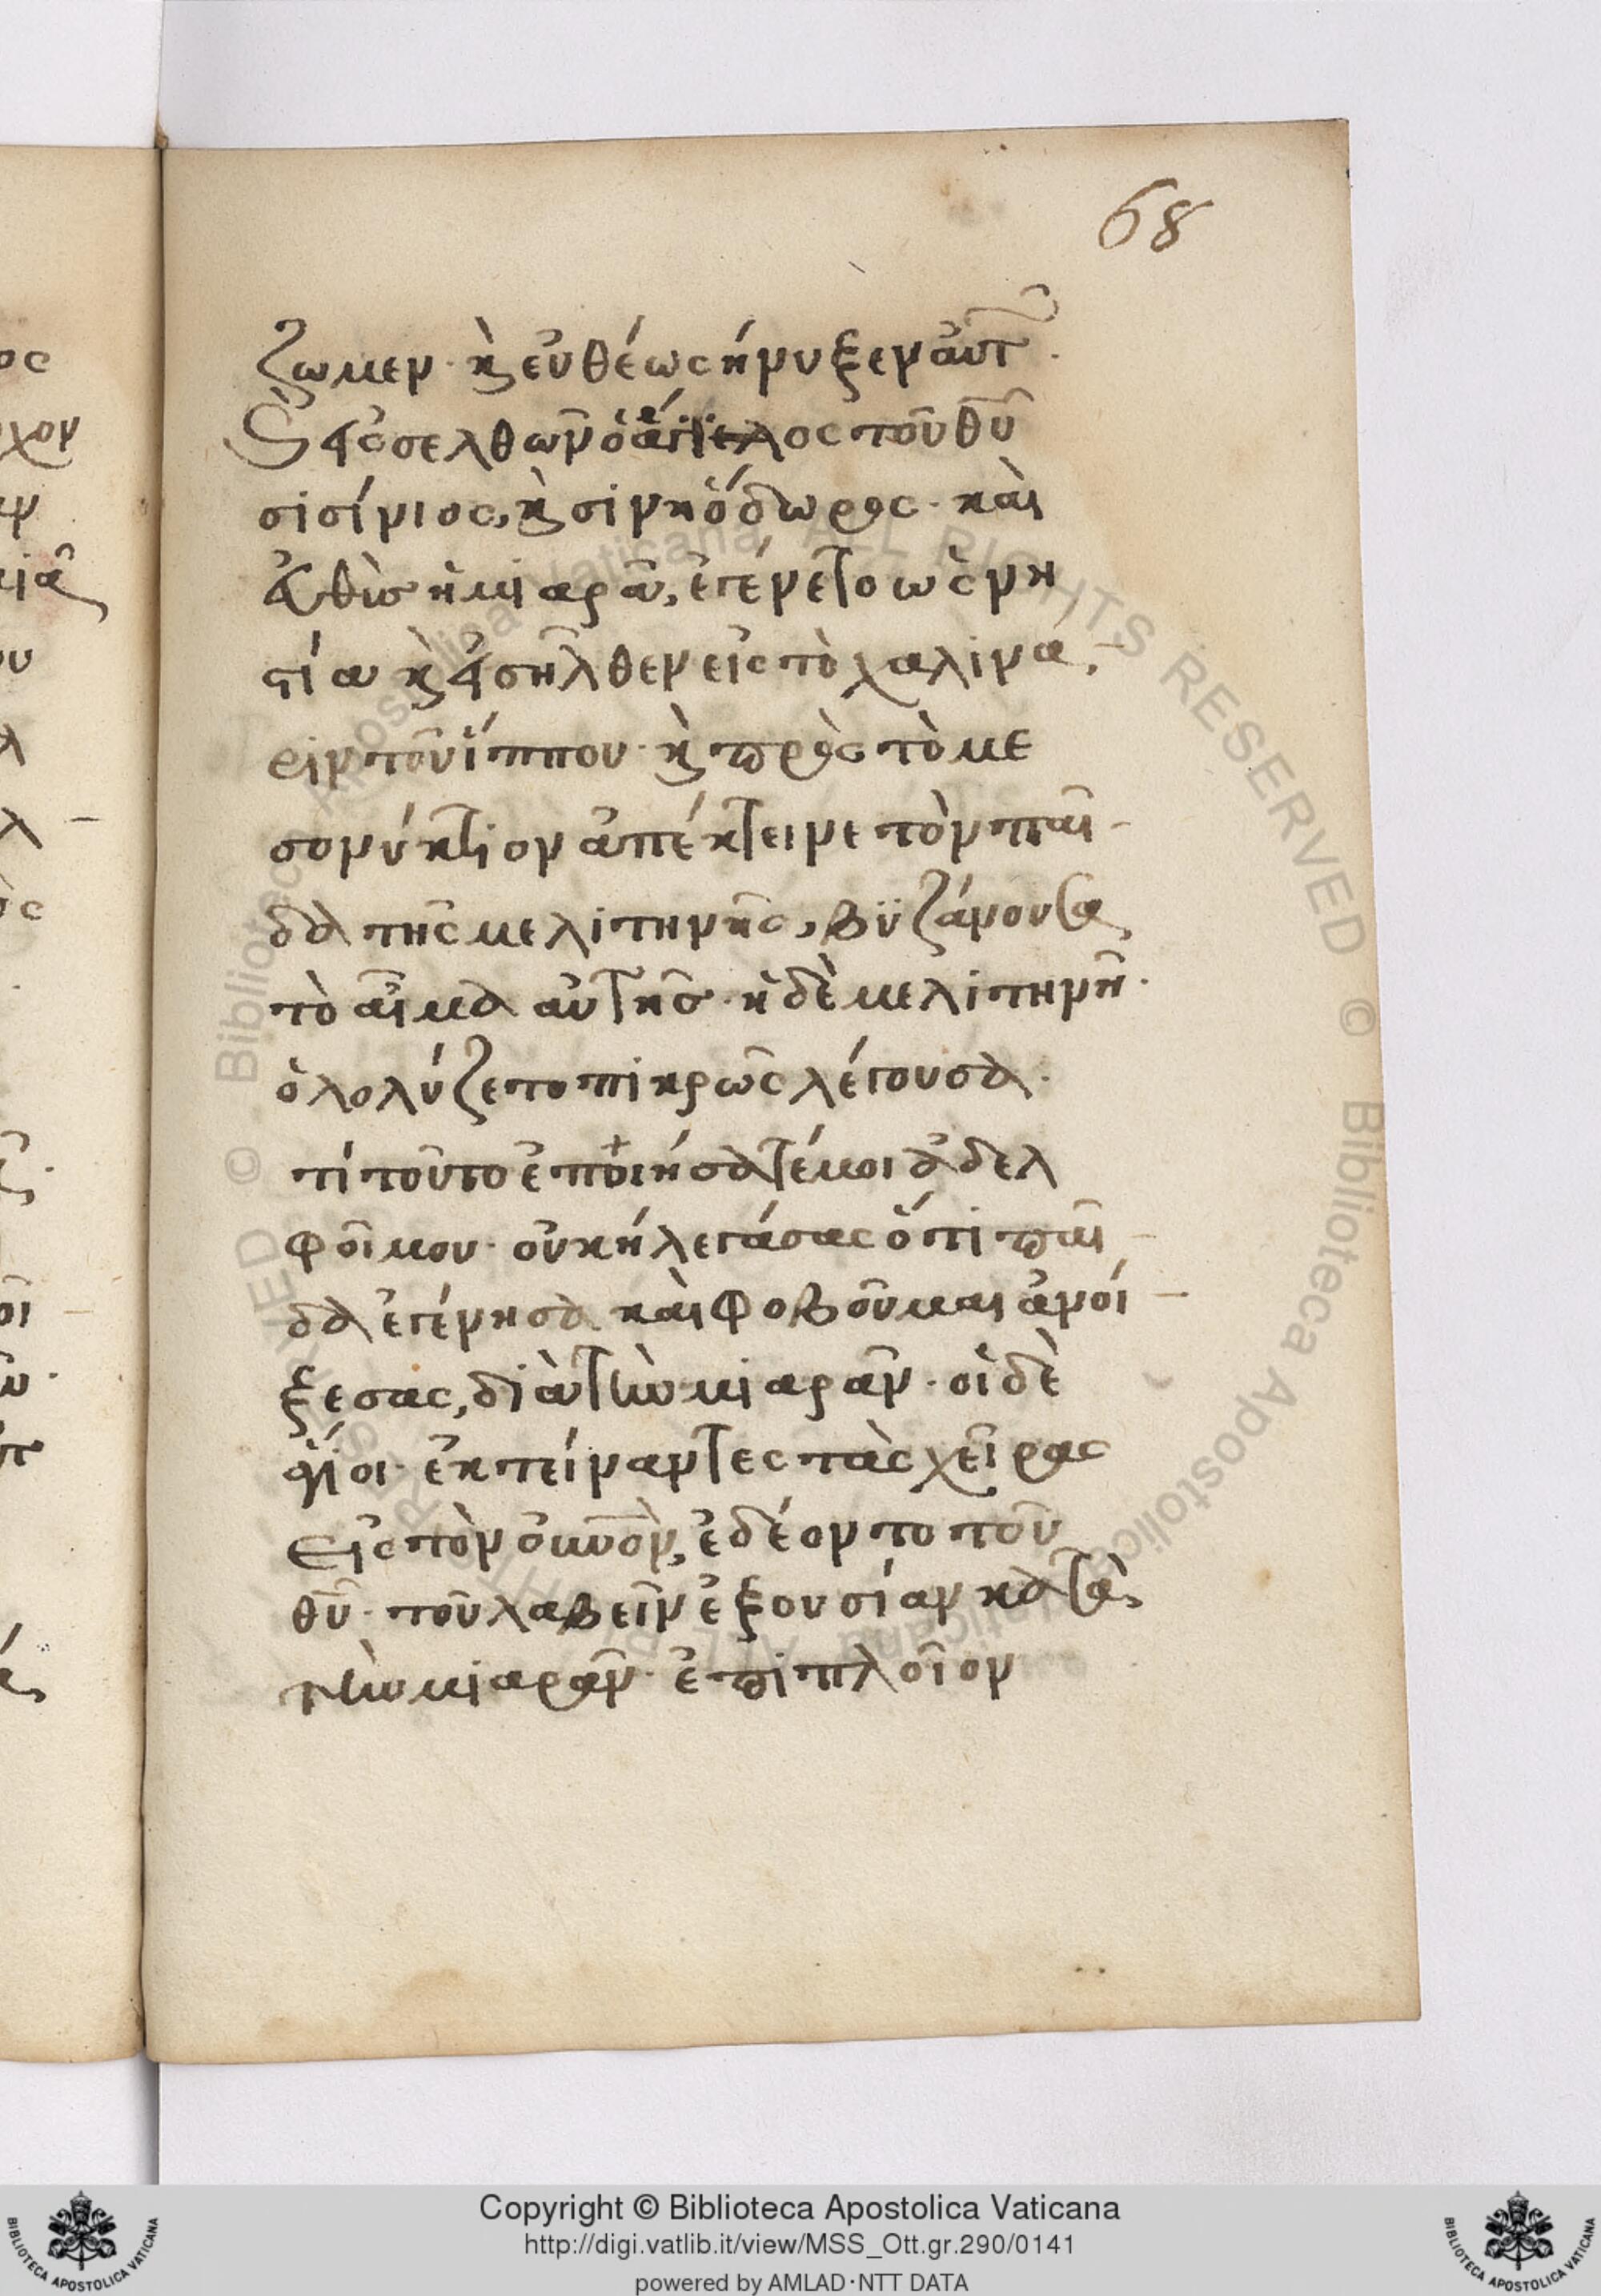 68
ζωμεν· κ εὐθέως ἤνυξεν αὐτ
εἰσελθὼν ὁ ἄγγελος τοῦ θῦ
σισίνιος, κ σινηόδωρος· καὶ
εὐθὺς ἡ μιαρὰ, ἐγένετο ὡς νη
στία κ εἰσῆλθεν εἰς τὸ χαλινά,
ριν τοῦ ἵππου· κ πρὸς τὸ με
σονύκτιον ἀπέκτεινε τὸν παῖ-
δα τῆς μελιτηνῆς, βϋζάνουσα
τὸ αἷμα αὐτῆς· ἡ δὲ μελιτηνὴ·
ὀλολύζετο πικρῶς λέγουσα·
τί τοῦτο ἐποιήσατέ μοι ἀδελ
φοί μου· οὐκ ἤλεγά σας ὅτι παῖ-
δα ἐγέννησα καὶ φοβοῦμαι ἀνοί-
ξε σας, διὰ τὴν μιαρὰν· οἱ δὲ
ἅγϊοι· ἐκτείναντες τὰς χεῖρας
εἰς τὸν οὐνὸν, ἐδέοντο τοῦ
θῦ· τοῦ λαβεῖν ἐξουσίαν κατὰ
τὴν μιαρὰν· ἐπὶ πλοῖον
Copyright © Biblioteca Apostolica Vaticana
http://digi.vatlib.it/view/MSS_Ott.gr.290/0141
powered by AMLAD·NTT DATA
BIBLIOTECA APOSTOLICA VATICANA
BIBLIOTECA APOSTOLICA VATICANA